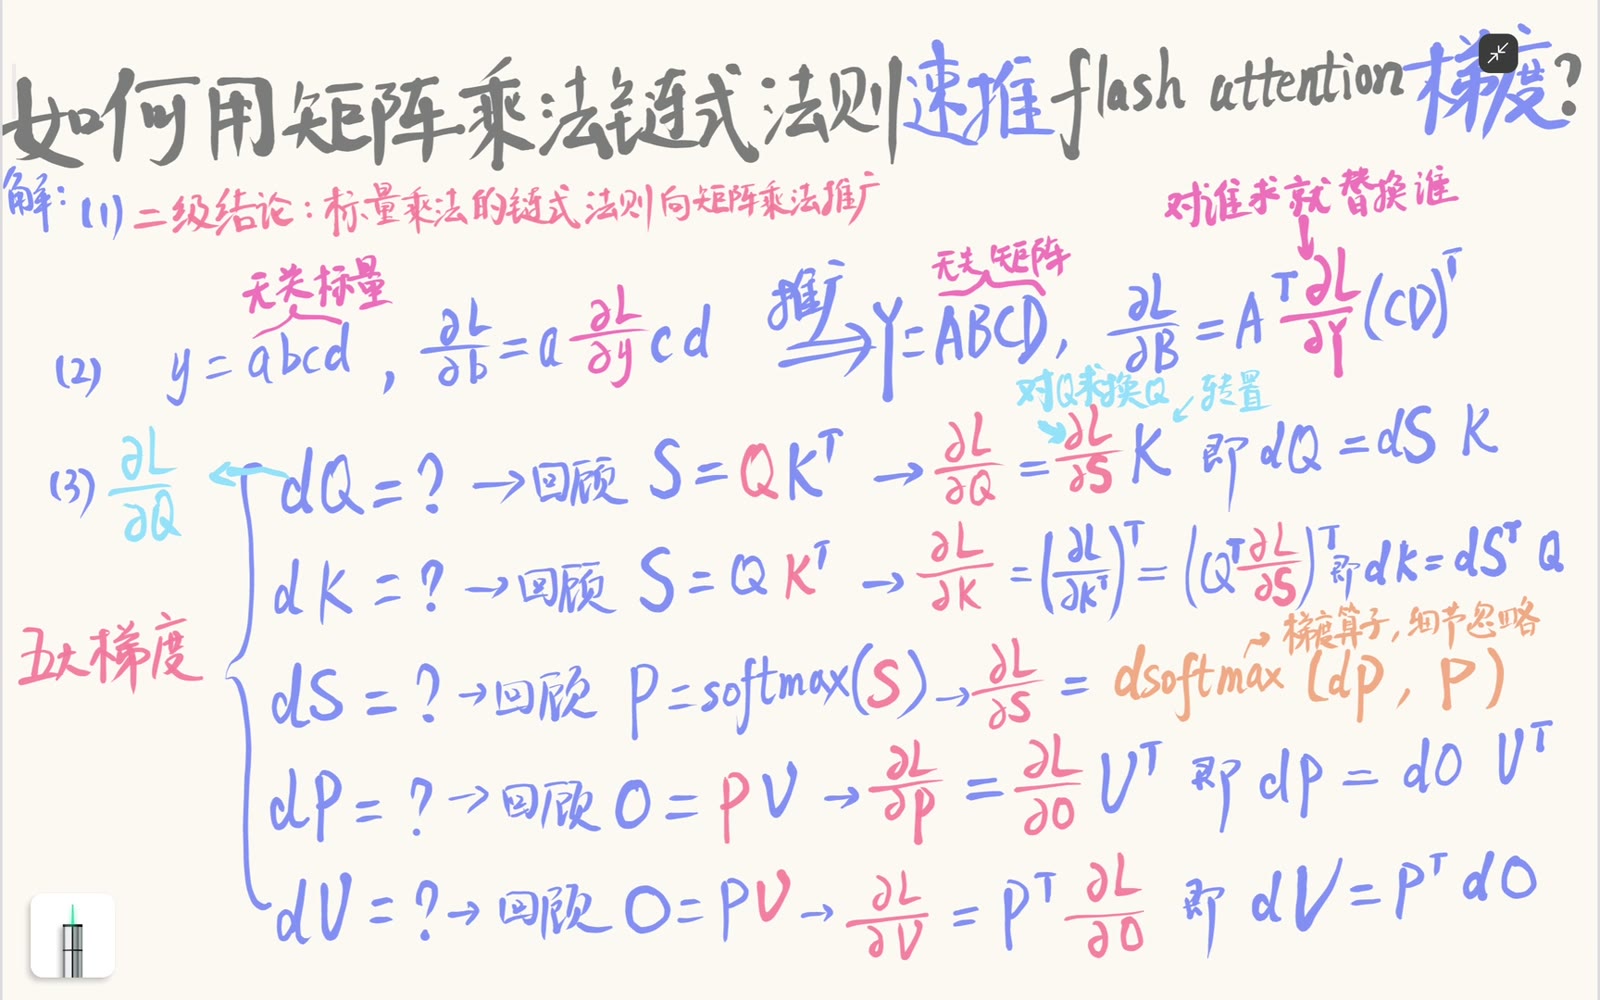 如何用矩阵乘法链式法则速推flash attention梯度?
解: (1) 二级结论: 标量乘法的链式法则向矩阵乘法推广
对谁求就替换谁
无关标量
推广
无关矩阵
(2) y = abcd , ∂L/∂b = a ∂L/∂y cd ⟹ Y = ABCD, ∂L/∂B = Aᵀ ∂L/∂Y (CD)ᵀ
对Q求换Q 转置
(3) ∂L/∂Q ← dQ = ? → 回顾 S = QKᵀ → ∂L/∂Q = ∂L/∂S K 即 dQ = dS K
dK = ? → 回顾 S = QKᵀ → ∂L/∂K = (∂L/∂Kᵀ)ᵀ = (Qᵀ ∂L/∂S)ᵀ 即 dK = dSᵀ Q
五大梯度
→ 梯度算子, 细节忽略
dS = ? → 回顾 P = softmax(S) → ∂L/∂S = dsoftmax (dP, P)
dP = ? → 回顾 O = PV → ∂L/∂P = ∂L/∂O Vᵀ 即 dP = dO Vᵀ
dV = ? → 回顾 O = PV → ∂L/∂V = Pᵀ ∂L/∂O 即 dV = Pᵀ dO